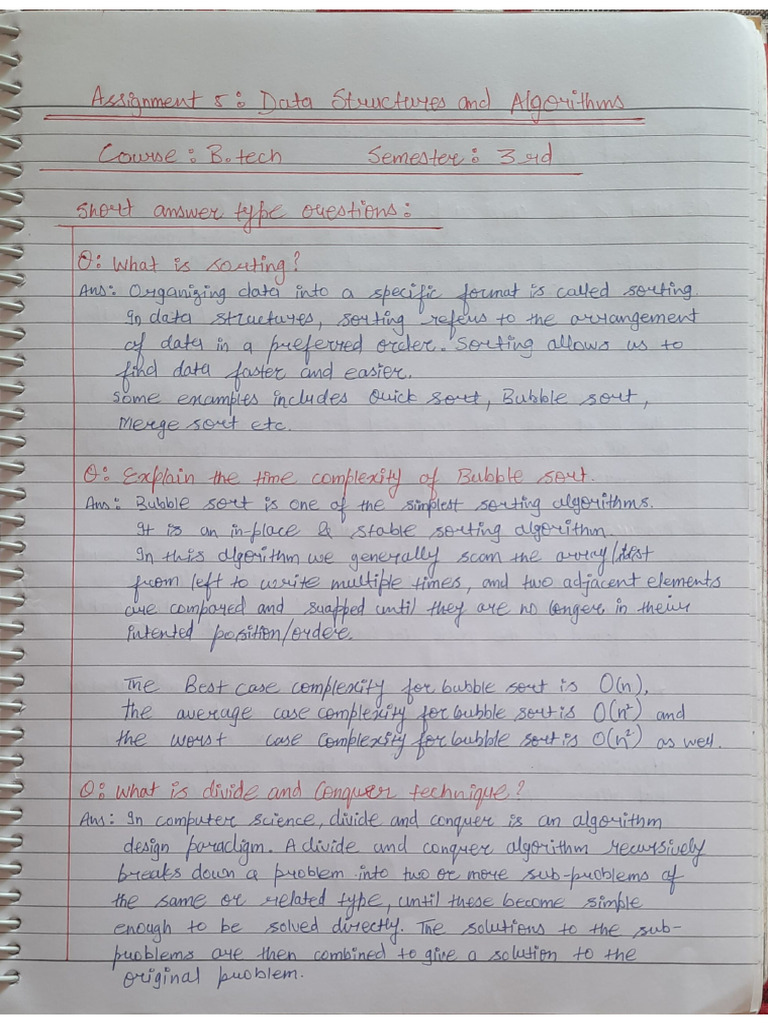 Assignment 5: Data Structures and Algorithms
Course: B.tech Semester: 3rd
Short answer type questions:
Q: What is sorting?
Ans: Organizing data into a specific format is called sorting.
In data structures, sorting refers to the arrangement
of data in a preferred order. Sorting allows us to
find data faster and easier.
Some examples includes Quick sort, Bubble sort,
Merge sort etc.
Q: Explain the time complexity of Bubble sort.
Ans: Bubble sort is one of the simplest sorting algorithms.
It is an in-place & stable sorting algorithm.
In this algorithm we generally scan the array/list
from left to write multiple times, and two adjacent elements
are compared and swapped until they are no longer in their
intented position/order.
The Best case complexity for bubble sort is O(n),
the average case complexity for bubble sort is O(n²) and
the worst case complexity for bubble sort is O(n²) as well.
Q: What is divide and Conquer technique?
Ans: In computer science, divide and conquer is an algorithm
design paradigm. A divide and conquer algorithm recursively
breaks down a problem into two or more sub-problems of
the same or related type, until these become simple
enough to be solved directly. The solutions to the sub-
problems are then combined to give a solution to the
original problem.